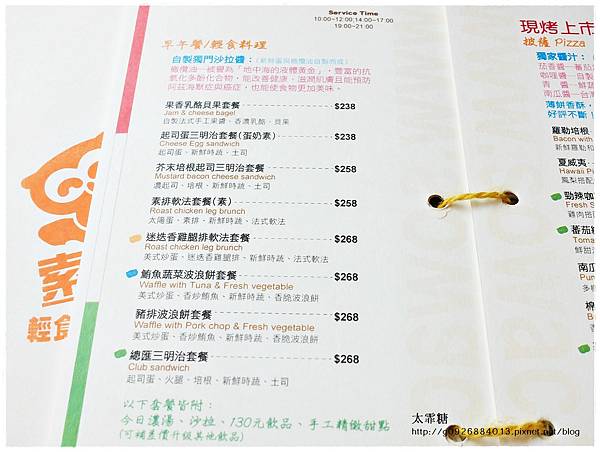 Service Time
10:00~12:00;14:00~17:00
19:00~21:00
早午餐/輕食料理
自製獨門沙拉醬：
橄欖油一被譽為「地中海的液體黃金」，豐富的抗
氧化多酚化合物，能改善健康，滋潤肌膚且能預防
阿茲海默症與癌症，也能使食物更加美味。
果香乳酪貝果套餐 $238
Jam & cheese bagel
自製法式手工果醬、香濃乳酪、貝果
起司蛋三明治套餐(蛋奶素) $238
Cheese Egg sandwich
起司蛋、新鮮時蔬、土司
芥末培根起司三明治套餐 $258
Mustard bacon cheese sandwich
濃起司、培根、新鮮時蔬、土司
素排軟法套餐(素) $258
Roast chicken leg brunch
太陽蛋、素排、新鮮時蔬、法式軟法
迷迭香雞腿排軟法套餐 $268
Roast chicken leg brunch
美式炒蛋、迷迭香雞腿排、新鮮時蔬、法式軟法
鮪魚蔬菜波浪餅套餐 $268
Waffle with Tuna & Fresh vegetable
美式炒蛋、香炒鮪魚、新鮮時蔬、香脆波浪餅
豬排波浪餅套餐 $268
Waffle with Pork chop & Fresh vegetable
美式炒蛋、香炒鮪魚、新鮮時蔬、香脆波浪餅
總匯三明治套餐 $268
Club sandwich
起司蛋、火腿、培根、新鮮時蔬、土司
以下套餐皆附：
今日濃湯、沙拉、130元飲品、手工精緻甜點
(可補差價升級其他飲品)
素
輕食
現烤上市
披薩 Pizza
獨家醬汁：
茄香醬一蕃茄
咖哩醬一自製
青 醬一鮮
南瓜醬一台灣
薄餅香酥，
好評不斷！
羅勒培根
Bacon with
新鮮羅勒和
夏威夷
Hawaii Pi
鳳梨搭配
勁辣咖
Fresh S
雞肉搭
蕃茄
Toma
鮮甜
南瓜
Pum
多
太霏糖
http://g0926884013.pixnet.net/blog